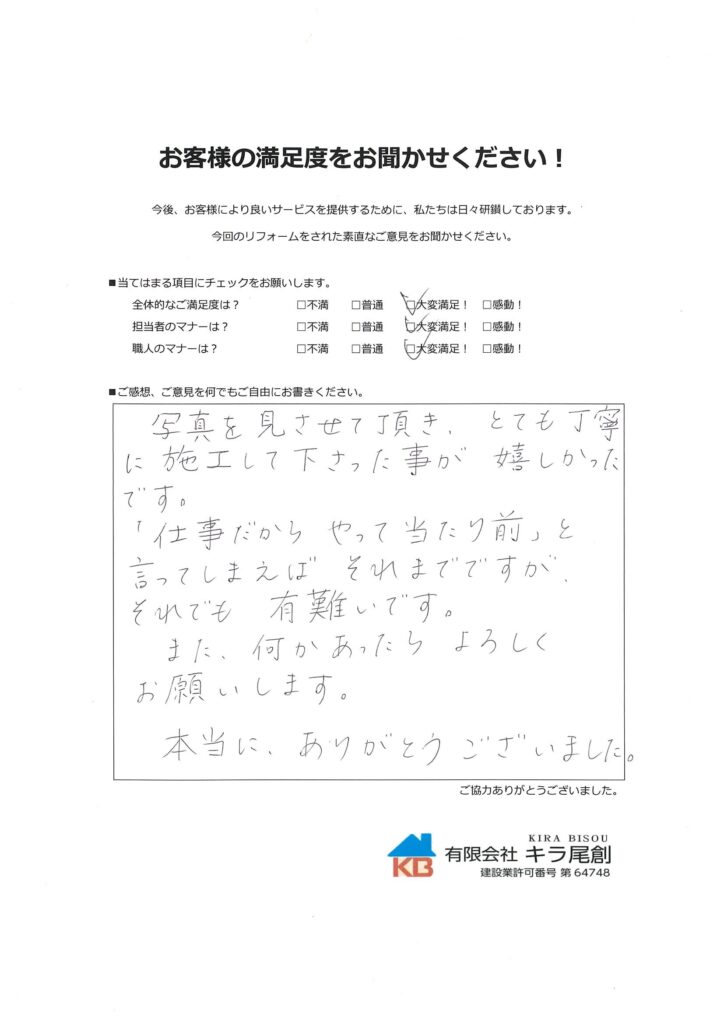 お客様の満足度をお聞かせください！
今後、お客様により良いサービスを提供するために、私たちは日々研鑽しております。
今回のリフォームをされた素直なご意見をお聞かせください。
■当てはまる項目にチェックをお願いします。
全体的なご満足度は？ □不満 □普通 ☑大変満足！ □感動！
担当者のマナーは？ □不満 □普通 ☑大変満足！ □感動！
職人のマナーは？ □不満 □普通 ☑大変満足！ □感動！
■ご感想、ご意見を何でもご自由にお書きください。
写真を見させて頂き、とても丁寧
に施工して下さった事が嬉しかった
です。
「仕事だから やって当たり前」と
言ってしまえば それまでですが、
それでも 有難いです。
また、何かあったら よろしく
お願いします。
本当に、ありがとうございました。
ご協力ありがとうございました。
KIRA BISOU
KB 有限会社 キラ尾創
建設業許可番号 第64748